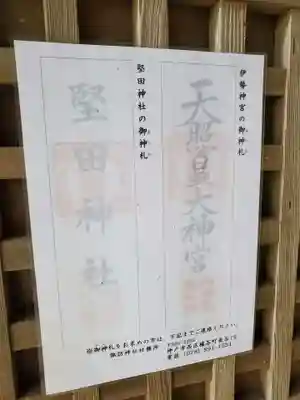 伊勢神宮の御神札
天照皇大神宮
堅田神社の御神札
堅田神社
※御神札をお求めの方は、下記までご連絡ください。
諏訪神社社務所
神戸市西区櫨谷町長谷13